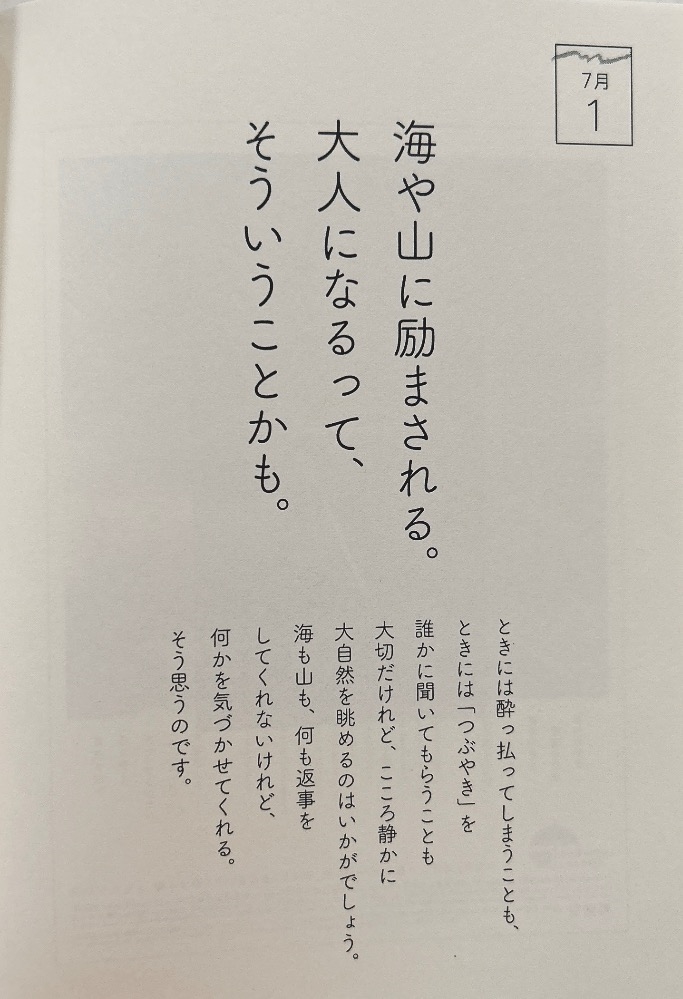 7月
1
海や山に励まされる。
大人になるって、
そういうことかも。
ときには酔っ払ってしまうことも、
ときには「つぶやき」を
誰かに聞いてもらうことも
大切だけれど、こころ静かに
大自然を眺めるのはいかがでしょう。
海も山も、何も返事を
してくれないけれど、
何かを気づかせてくれる。
そう思うのです。